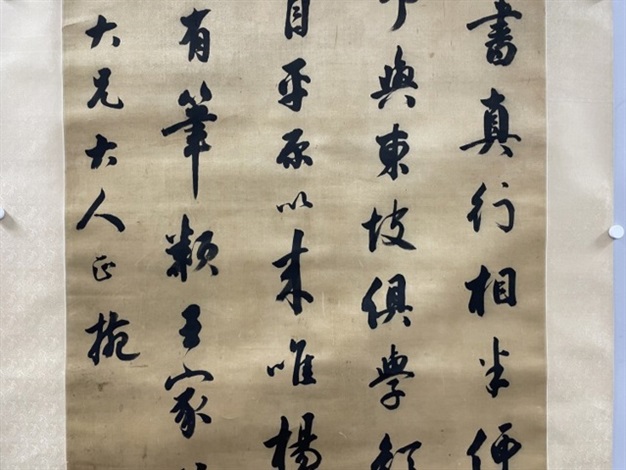 書真行相半便
與東坡俱學
自平原以來唯楊
有筆類王家
大兄大人正捥